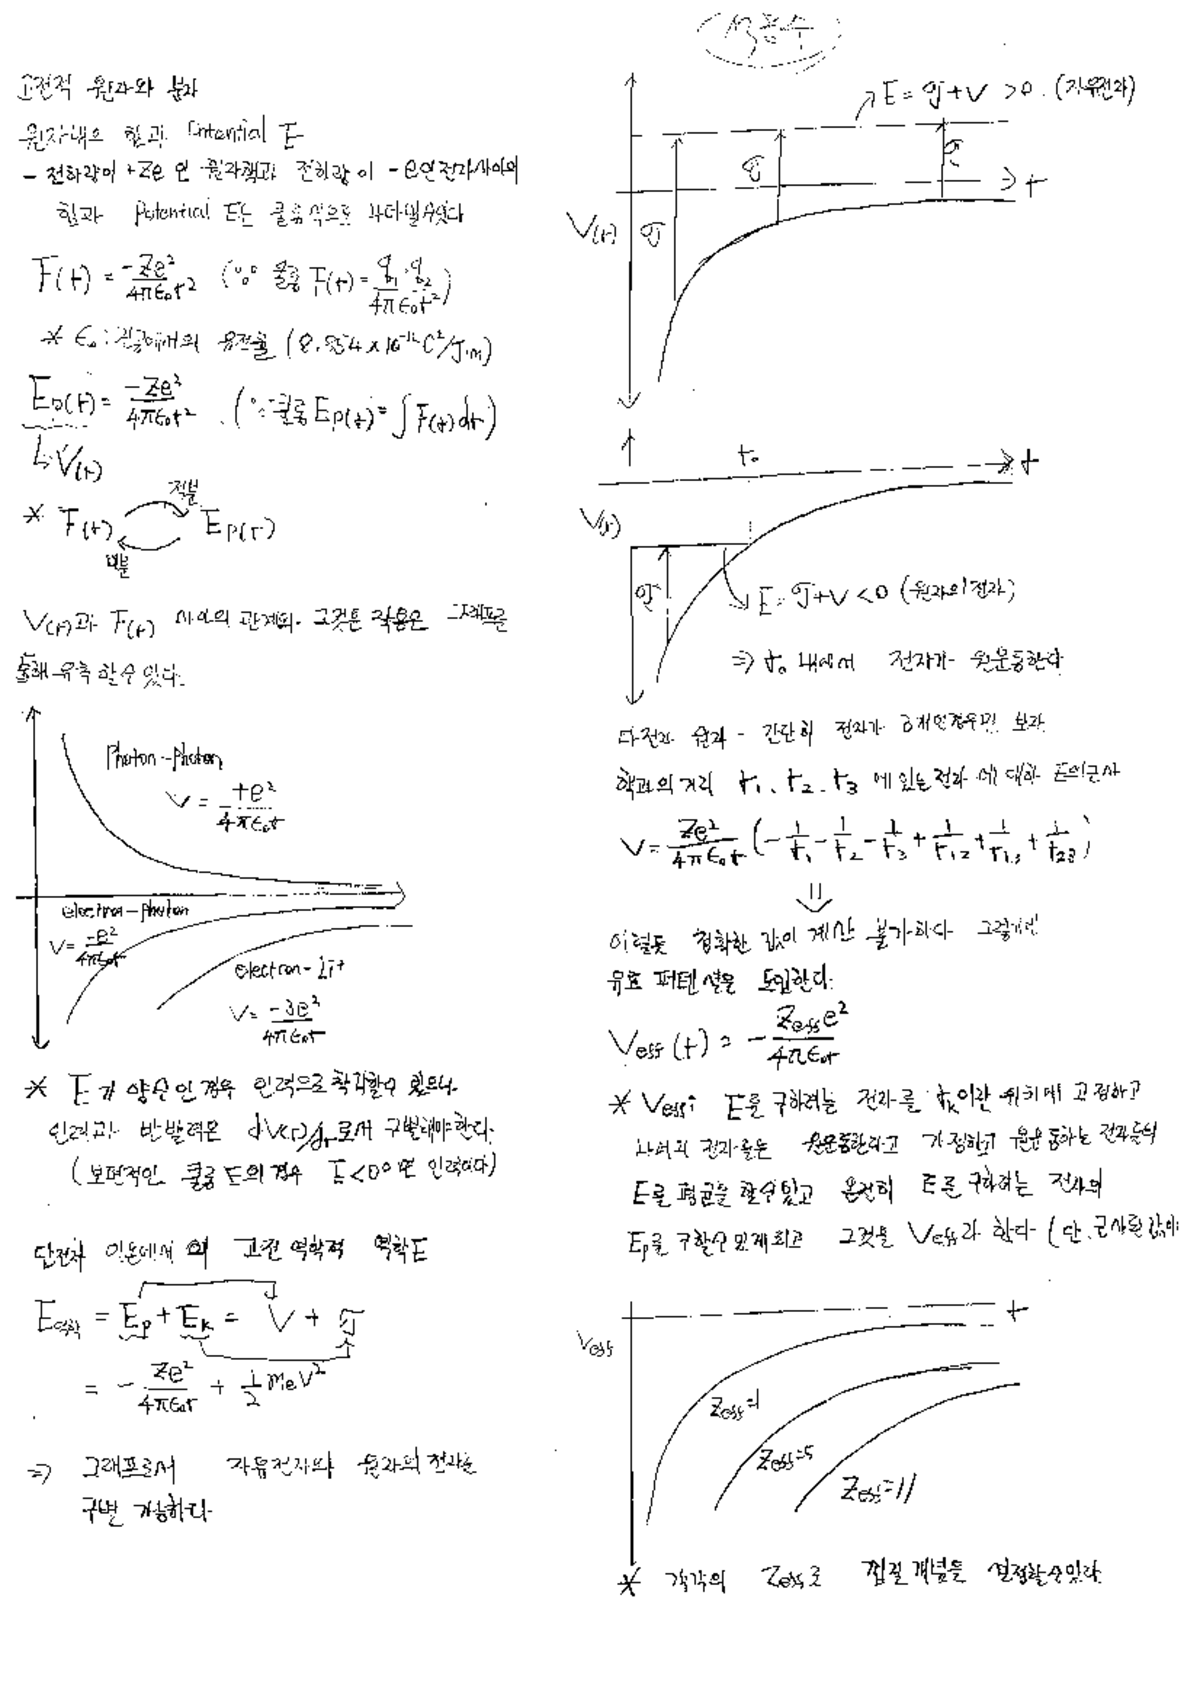 고전적 원자와 분자
원자내의 힘과 Potential E
- 전하량이 +Ze 인 원자핵과 전하량이 -e인 전자사이의
힘과 Potential E는 쿨롱식으로 나타낼수있다
F(r) = -Ze²/4πε₀r² (∵ 쿨롱 F(r) = q₁·q₂/4πε₀r²)
* ε₀ : 진공에서의 유전율 (8.854×10⁻¹²C²/J·m)
Ep(r) = -Ze²/4πε₀r² . (∵ 쿨롱 Ep(r) = ∫F(r)dr)
↳ V(r)
적분
* F(r) Ep(r)
미분
V(r)과 F(r) 사이의 관계와 그것은 작용은 그래프를
통해 유추 할수 있다.
Photon-photon
V = +e²/4πε₀r
electron-photon
V = -e²/4πε₀r
electron-Li+
V = -3e²/4πε₀r
* E가 양수인 경우 인력으로 착각할수 있으나
인력과 반발력은 dV(r)/dr로서 구별해야한다.
(보편적인 쿨롱 E의 경우 E<0이면 인력이다)
단전자 이온에서의 고전 역학적 역학E
E역학 = Ep + Ek = V + 𝒯
= - Ze²/4πε₀r + 1/2 meV²
⇒ 그래프로서 자유전자와 원자의 전자는
구별 가능하다
E = 𝒯+V >0 . (자유전자)
𝒯 𝒯 𝒯
r
V(r)
r₀ r
V(r)
𝒯
E = 𝒯+V <0 (원자의 전자)
⇒ r₀ 내에서 전자가 원운동한다
다전자 원자 - 간단히 전자가 3개인경우만 보자
핵과의 거리 r₁, r₂, r₃ 에 있는 전자 에 대한 E의 근사
V = Ze²/4πε₀r (-1/r₁ - 1/r₂ - 1/r₃ + 1/r₁₂ + 1/r₁₃ + 1/r₂₃)
⇓
이렇듯 정확한 값이 계산 불가하다 그렇기에
유효 퍼텐셜을 도입한다.
Veff(r) = - Zeff e²/4πε₀r
* Veff: E를 구하려는 전자를 rk이란 위치에 고정하고
나머지 전자들은 원운동한다고 가정하고 원운동하는 전자들의
E를 평균을 할수있고 온전히 E를 구하려는 전자의
Ep를 구할수 있게되고 그것을 Veff라 한다 (단, 근사된값이
r
Veff
Zeff=1
Zeff=5
Zeff=11
* 각각의 Zeff로 껍질 개념을 설정할수있다